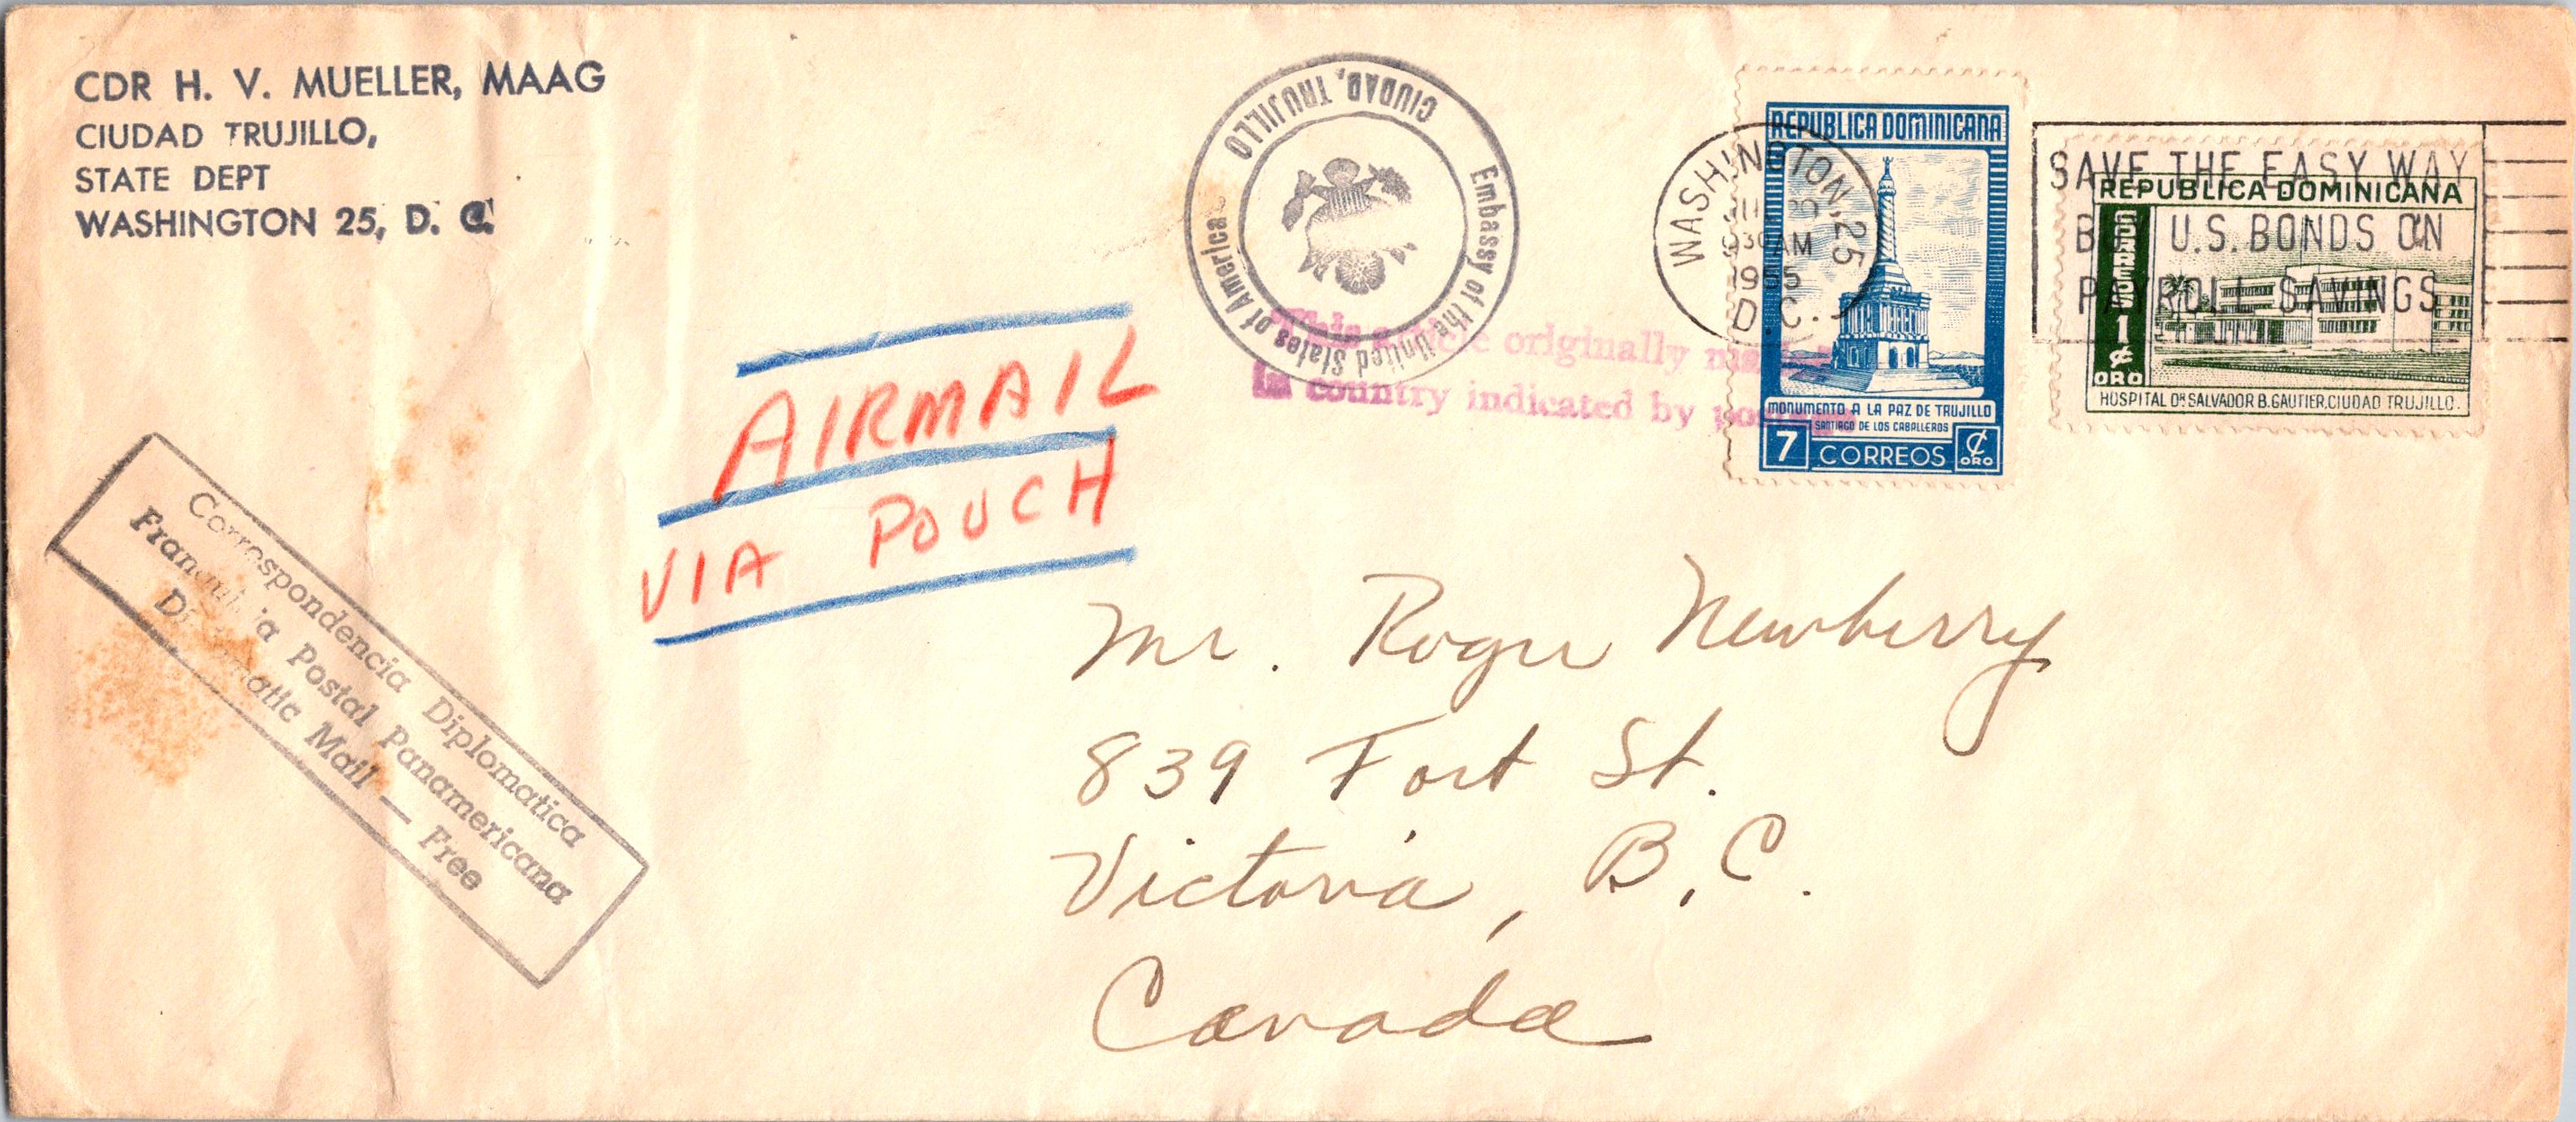 CDR H. V. MUELLER, MAAG
CIUDAD TRUJILLO,
STATE DEPT
WASHINGTON 25, D. C.
CIUDAD TRUJILLO
Embassy of the United States of America
This article originally
in country indicated by
REPUBLICA DOMINICANA
MONUMENTO A LA PAZ DE TRUJILLO
SANTIAGO DE LOS CABALLEROS
7 CORREOS ¢ ORO
WASHINGTON, 25
9 30 AM
1955
D.C.
SAVE THE EASY WAY
BUY U.S. BONDS ON
PAYROLL SAVINGS
REPUBLICA DOMINICANA
CORREOS
1 ¢
ORO
HOSPITAL DR SALVADOR B. GAUTIER, CIUDAD TRUJILLO.
AIRMAIL
VIA POUCH
Correspondencia Diplomatica
Franquicia Postal Panamericana
Diplomatic Mail — Free
Mr. Roger Newberry
839 Fort St.
Victoria, B.C.
Canada